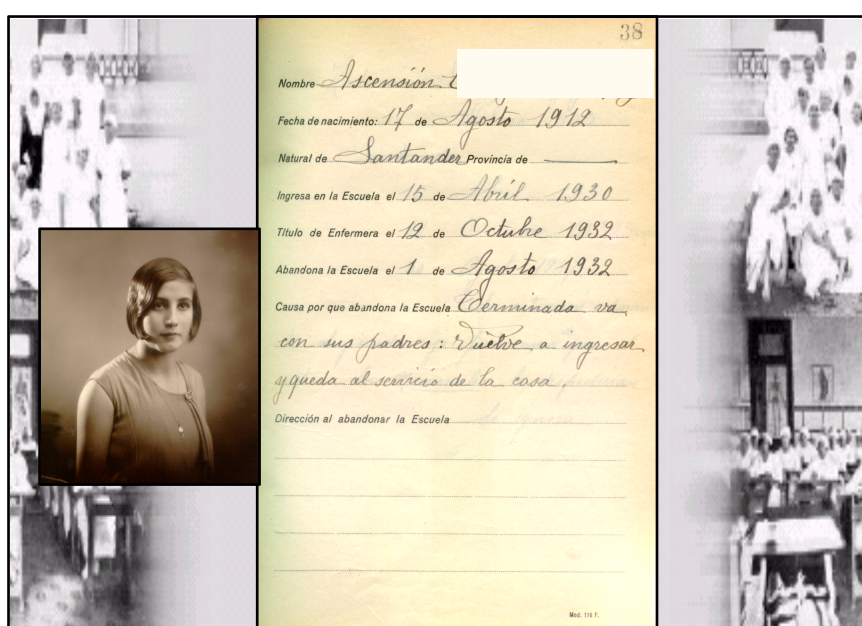 38
Nombre Ascensión
Fecha de nacimiento: 17 de Agosto 1912
Natural de Santander Provincia de
Ingresa en la Escuela el 15 de Abril 1930
Título de Enfermera el 12 de Octubre 1932
Abandona la Escuela el 1 de Agosto 1932
Causa por que abandona la Escuela Terminada va
con sus padres: Vuelve a ingresar
y queda al servicio de la casa,
Dirección al abandonar la Escuela
Mod. 116 F.